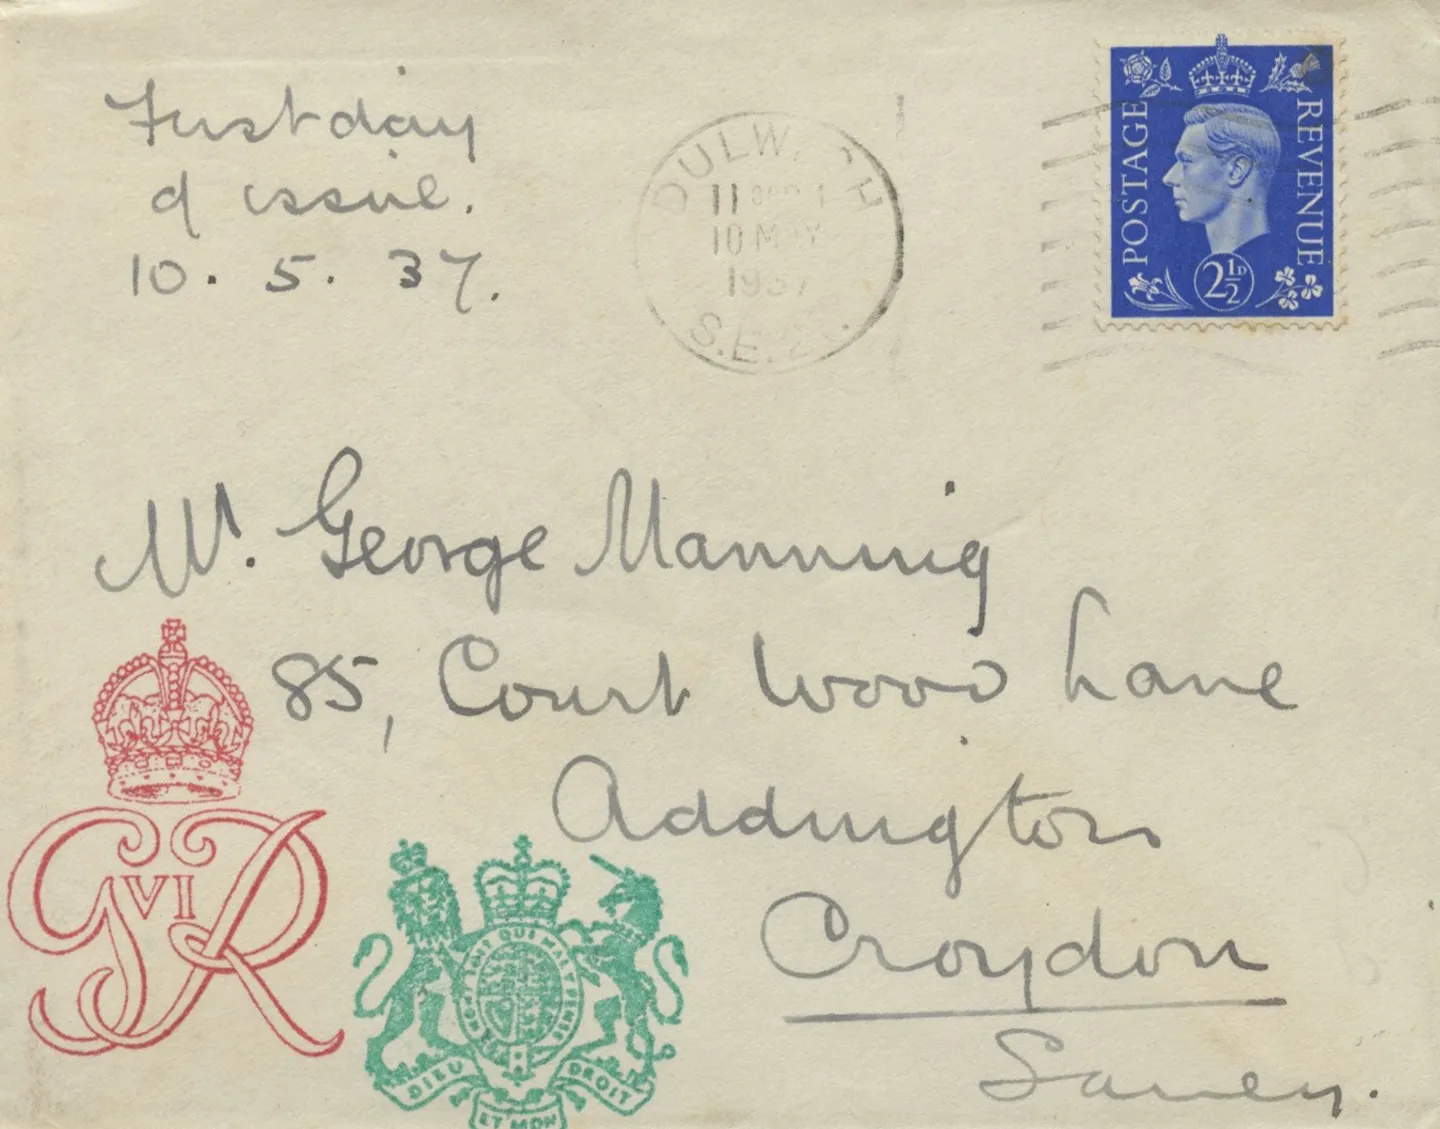 First day
of issue.
10. 5. 37.
DULWICH
11
10 MAY
1937
S.E.
POSTAGE
REVENUE
2½D
Mr. George Manning
85, Court Wood Lane
Addington
Croydon
Surrey.
G VI R
HONI SOIT QUI MAL Y PENSE
DIEU ET MON DROIT